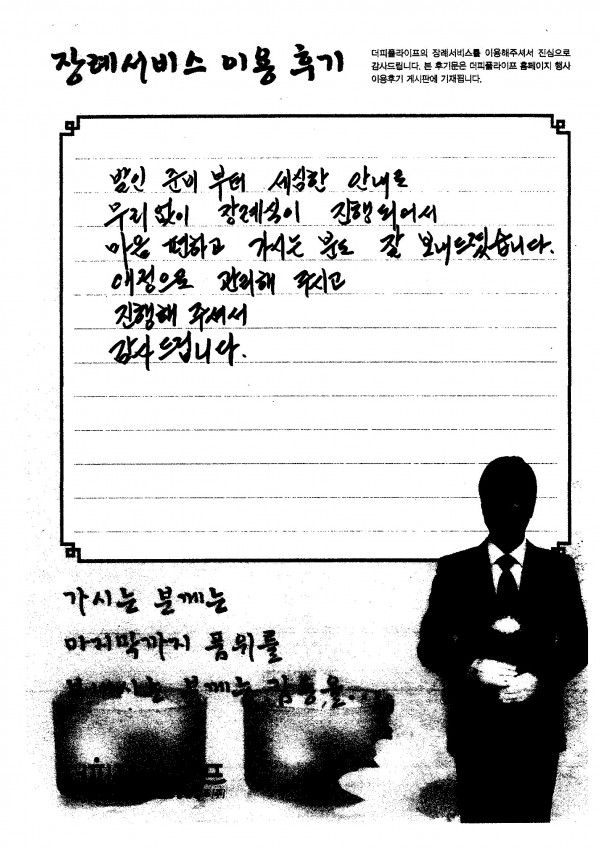 장례서비스 이용 후기
더피플라이프의 장례서비스를 이용해주셔서 진심으로
감사드립니다. 본 후기문은 더피플라이프 홈페이지 행사
이용후기 게시판에 기재됩니다.
발인 준비 부터 세심한 안내로
무리없이 장례식이 진행되어서
마음 편하고 가시는 분도 잘 보내드렸습니다.
애정으로 관리해 주시고
진행해 주셔서
감사드립니다.
가시는 분께는
마지막까지 품위를
분께는 감동을.